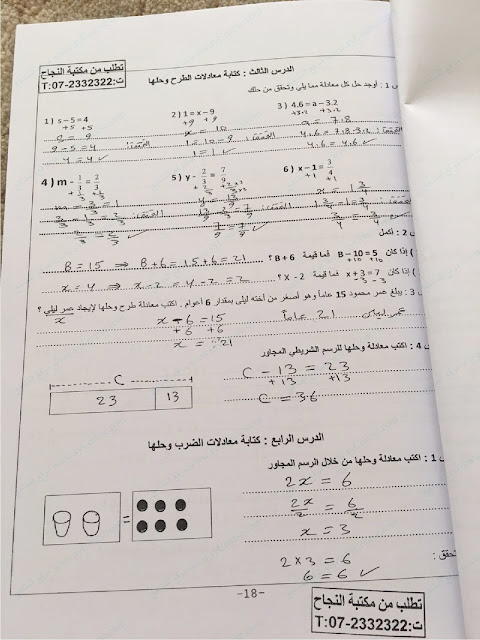 تطلب من مكتبة النجاح
ت:07-2332322:T
الدرس الثالث : كتابة معادلات الطرح وحلها
س 1 : أوجد حل كل معادلة مما يلي وتحقق من حلك
1) s – 5 = 4    2) 1 = x – 9    3) 4.6 = a – 3.2
+5 +5    +9 +9    +3.2 +3.2
s = 9    x = 10    a = 7.8
9 – 5 = 4 التحقق:    1 = 10 – 9 التحقق:    4.6 = 7.8 - 3.2 التحقق:
4 = 4 ✓    1 = 1 ✓    4.6 = 4.6 ✓
4) m - 1/3 = 2/3    5) y - 2/3 = 7/9    6) x – 1 = 3/4
+1/3 +1/3    +1 +1
m = 3/3 = 1    y = 13/9    x = 1 3/4
التحقق:    التحقق:    1 3/4 - 1 = 3/4 التحقق:
2/3 = 2/3 ✓    7/9 = 7/9 ✓    3/4 = 3/4 ✓
س 2 : أكمل
) إذا كان B – 10 = 5 فما قيمة B + 6 ؟
+10 +10
B = 15 ⇒ B + 6 = 15 + 6 = 21
) إذا كان x + 3 = 7 فما قيمة X - 2 ؟
-3 -3
x = 4 ⇒ x - 2 = 4 - 2 = 2
س 3 : يبلغ عمر محمود 15 عاماً وهو أصغر من أخته ليلى بمقدار 6 أعوام . اكتب معادلة طرح وحلها لإيجاد عمر ليلى ؟
x
x - 6 = 15
+6 +6
x = 21
عمر ليلى = 21 عاماً
س 4 : اكتب معادلة وحلها للرسم الشريطي المجاور
C
23 13
C - 13 = 23
+13 +13
C = 36
الدرس الرابع : كتابة معادلات الضرب وحلها
س 1 : اكتب معادلة وحلها من خلال الرسم المجاور
=
2x = 6
2x/2 = 6/2
x = 3
تحقق :
2 × 3 = 6
6 = 6 ✓
-18-
تطلب من مكتبة النجاح
ت:07-2332322:T